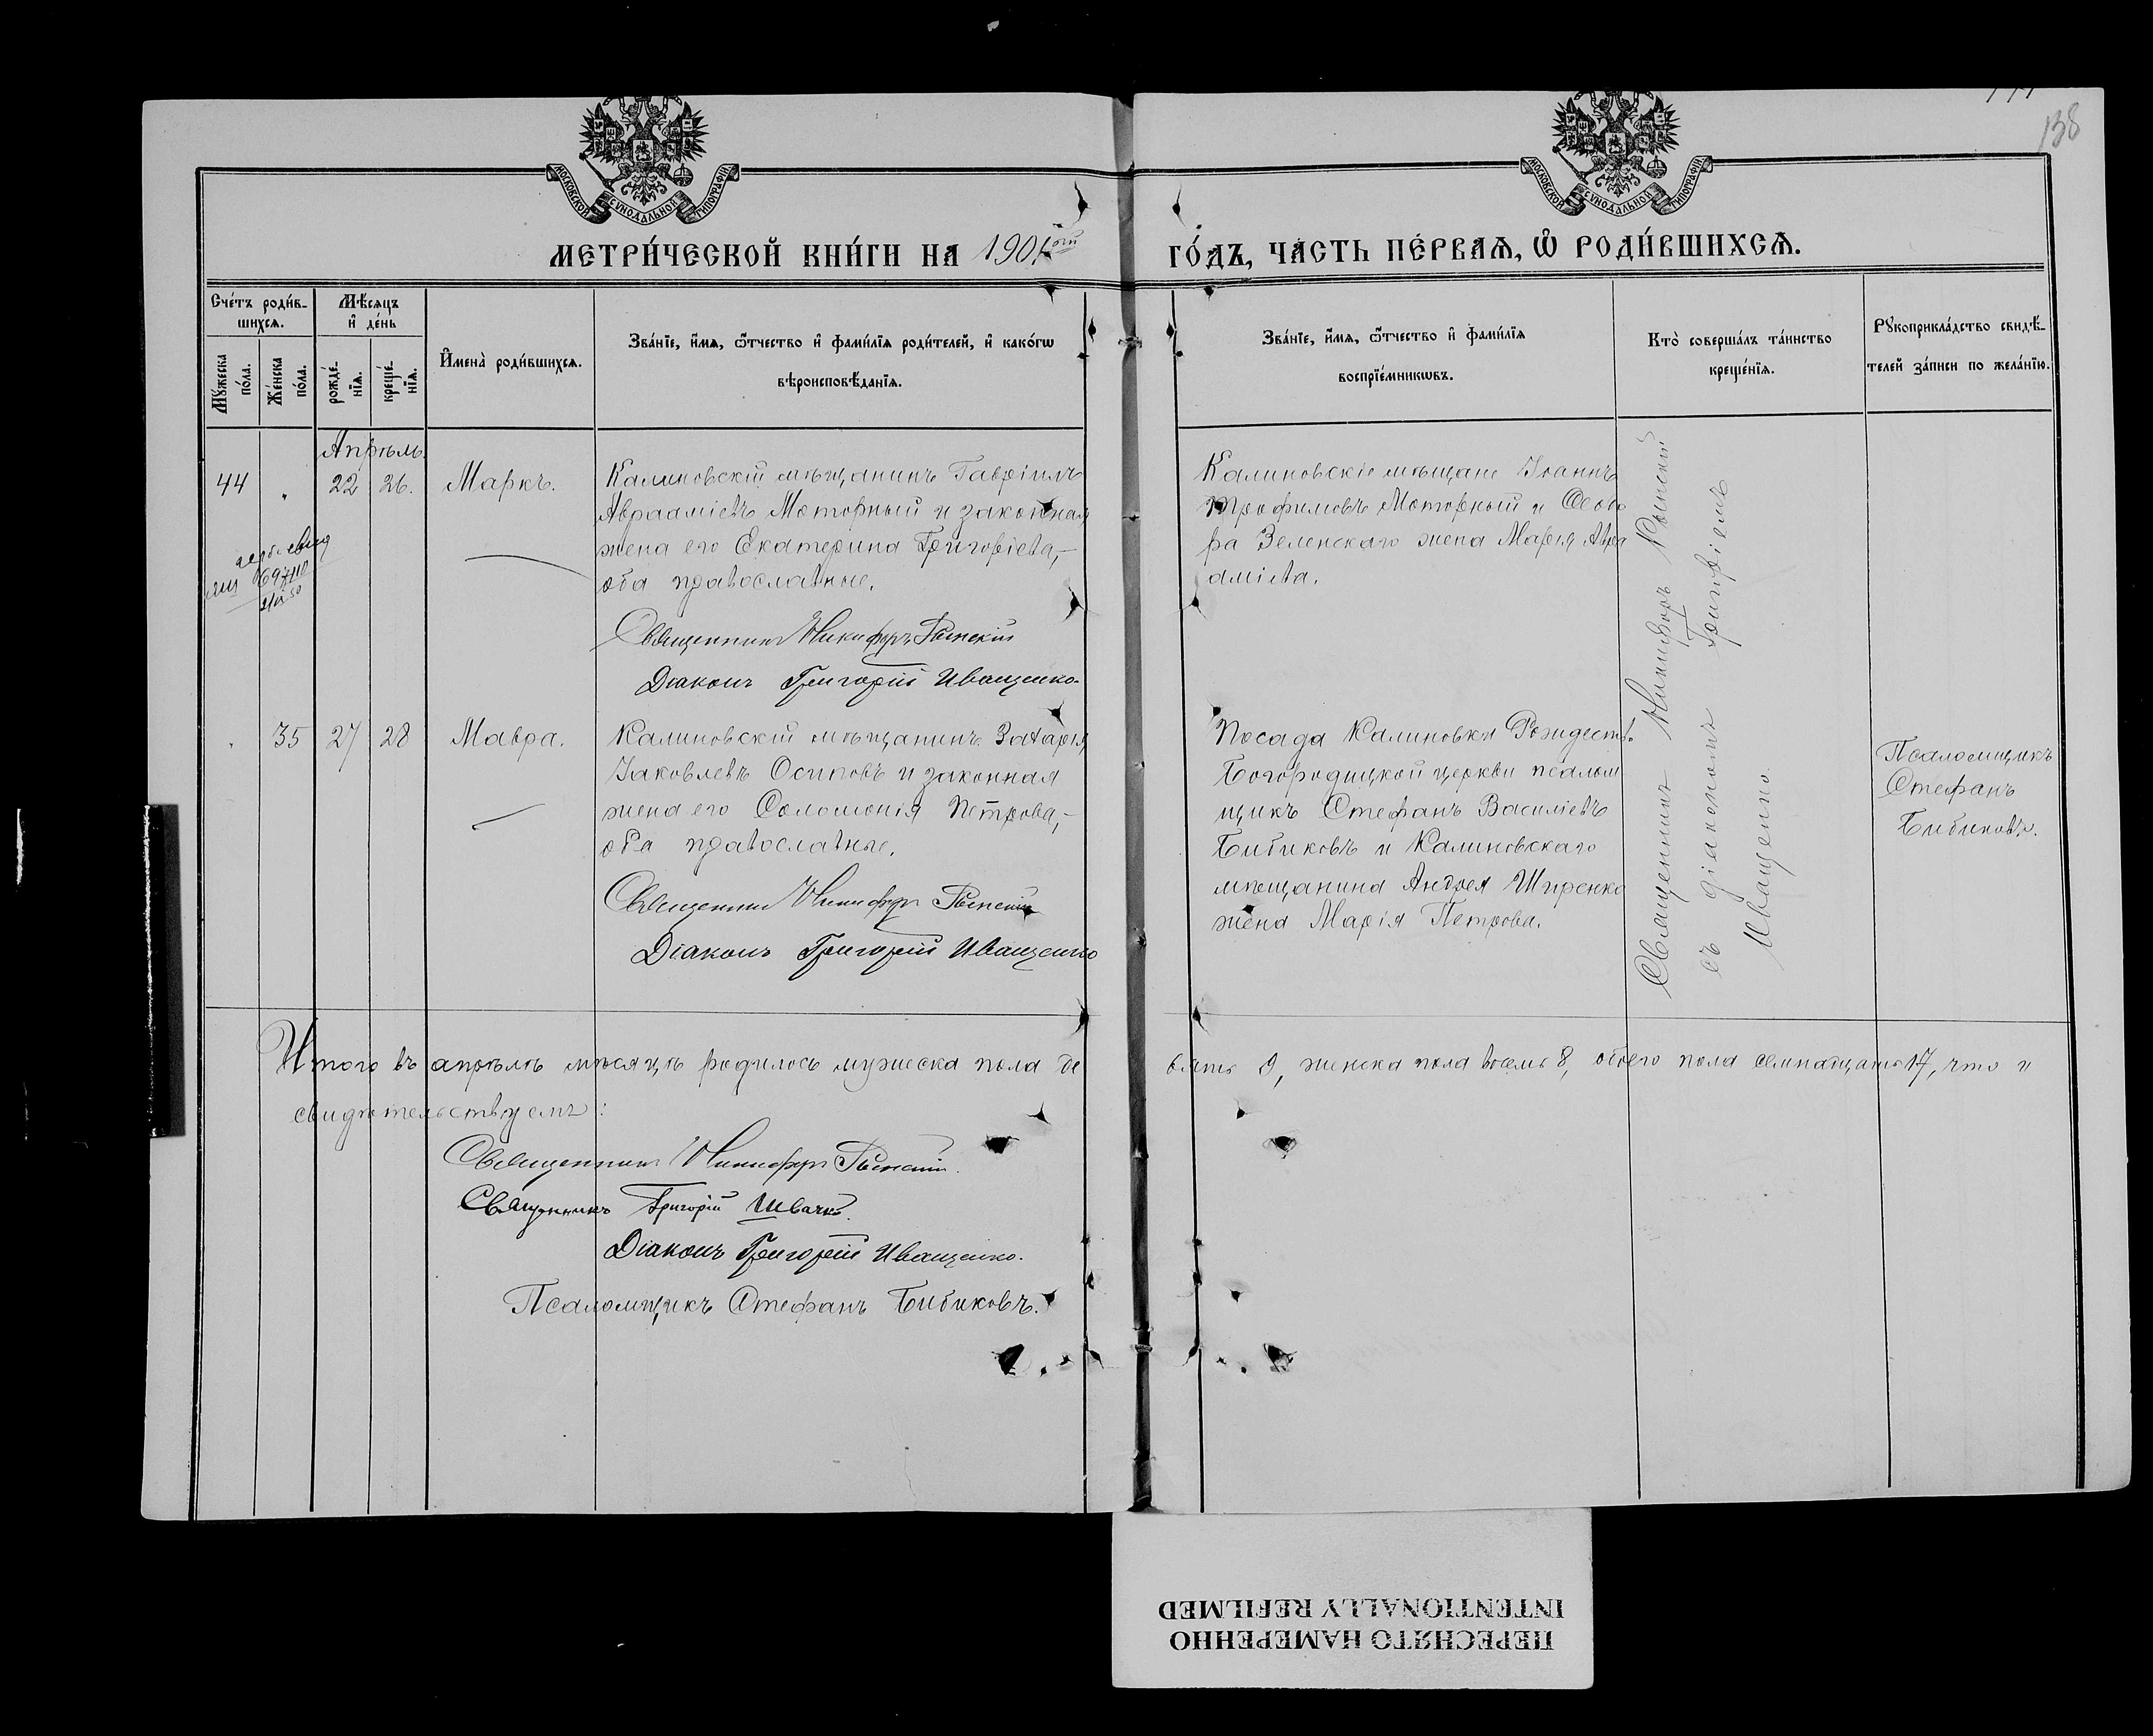 138
МОСКОВСКОЙ СѴНОДАЛЬНОЙ ТИПОГРАФІИ
МОСКОВСКОЙ СѴНОДАЛЬНОЙ ТИПОГРАФІИ
МЕТРИ́ЧЕСКОЙ КНИ́ГИ НА 1901ый ГО́ДЪ, ЧА́СТЬ ПЕ́РВАѦ, Ѿ РОДИ́ВШИХСѦ.
Сче́тъ роди́в-
шихсѧ.
Мѣ́сѧцъ
и҆ де́нь
Мꙋ́жеска
по́ла.
Же́нска
по́ла.
рожде́-
нїѧ.
креще́-
нїѧ.
И҆мена̀ роди́вшихсѧ.
Зва́нїе, и҆́мѧ, ѻ҆́тчество и҆ фами́лїѧ роди́телей, и҆ како́гѡ
вѣроисповѣ́данїѧ.
Зва́нїе, и҆́мѧ, ѻ҆́тчество и҆ фами́лїѧ
воспрїе́мникѡвъ.
Кто̀ соверша́лъ та́инство
креще́нїѧ.
Рꙋкоприкла́дство свидѣ́-
телей за́писи по жела́нїю.
Апрѣль.
44 " 22 26. Маркъ.
Калиновскій мѣщанинъ Гавріилъ
Авраамієвъ Моторный и законная
жена его Екатерина Григоріева,-
оба православные.
Священникъ Никифоръ Рынскій
Діаконъ Григорій Иващенко.
Калиновскіе мѣщане Іоаннъ
Трофимовъ Моторный и Ѳеодо
ра Зеленскаго жена Марія Авра
аміева.
" 35 27 28 Мавра.
Калиновскій мѣщанинъ Захарія
Іаковлевъ Осиповъ и законная
жена его Соломонія Петрова,-
оба православные.
Священникъ Никифоръ Рынскій
Діаконъ Григорій Иващенко
Посада Калиновки Рождество
Богородицкой церкви псалом
щикъ Стефанъ Василіевъ
Бибиковъ и Калиновскаго
мѣщанина Андрея Ширенко
жена Марія Петрова.
Священникъ Никифоръ Рынскій
съ діакономъ Григоріемъ
Иващенко.
Псаломщикъ
Стефанъ
Бибиковъ.
Итого въ апрѣлѣ мѣсяцѣ родилось мужеска пола де вять 9, женска пола восемь 8, обоего пола семнадцать 17, что и
свидѣтельствуемъ:
Священникъ Никифоръ Рынскій.
Священникъ Григорій Швачко.
Діаконъ Григорій Иващенко.
Псаломщикъ Стефанъ Бибиковъ.
ПЕРЕСНЯТО НАМЕРЕННО
INTENTIONALLY REFILMED